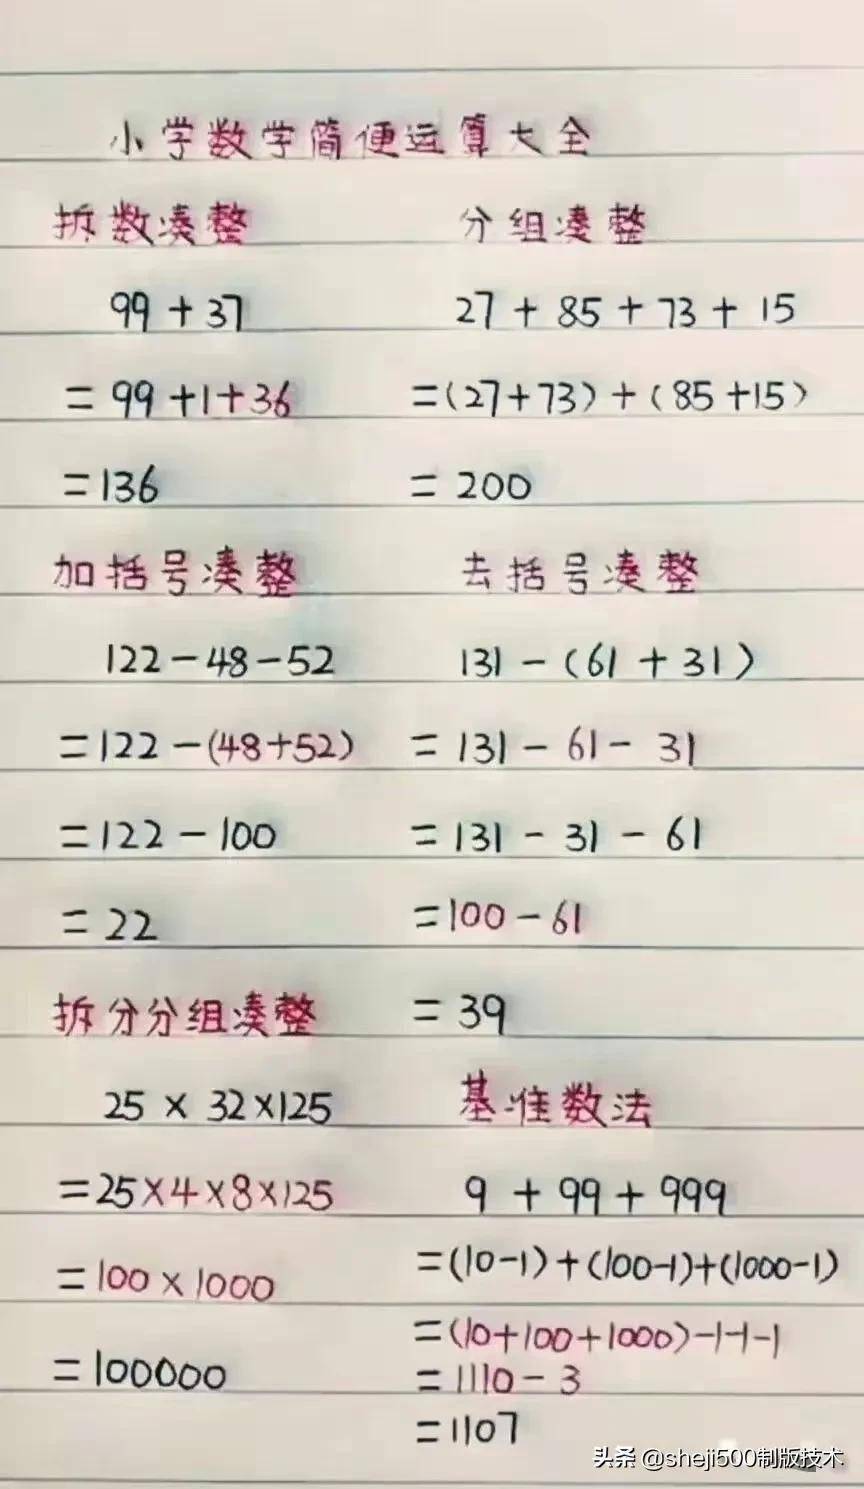 小学数学简便运算大全
拆数凑整
99+37
=99+1+36
=136
分组凑整
27+85+73+15
=(27+73)+(85+15)
=200
加括号凑整
122-48-52
=122-(48+52)
=122-100
=22
去括号凑整
131-(61+31)
=131-61-31
=131-31-61
=100-61
=39
拆分分组凑整
25×32×125
=25×4×8×125
=100×1000
=100000
基准数法
9+99+999
=(10-1)+(100-1)+(1000-1)
=(10+100+1000)-1-1-1
=1110-3
=1107
头条 @sheji500制版技术